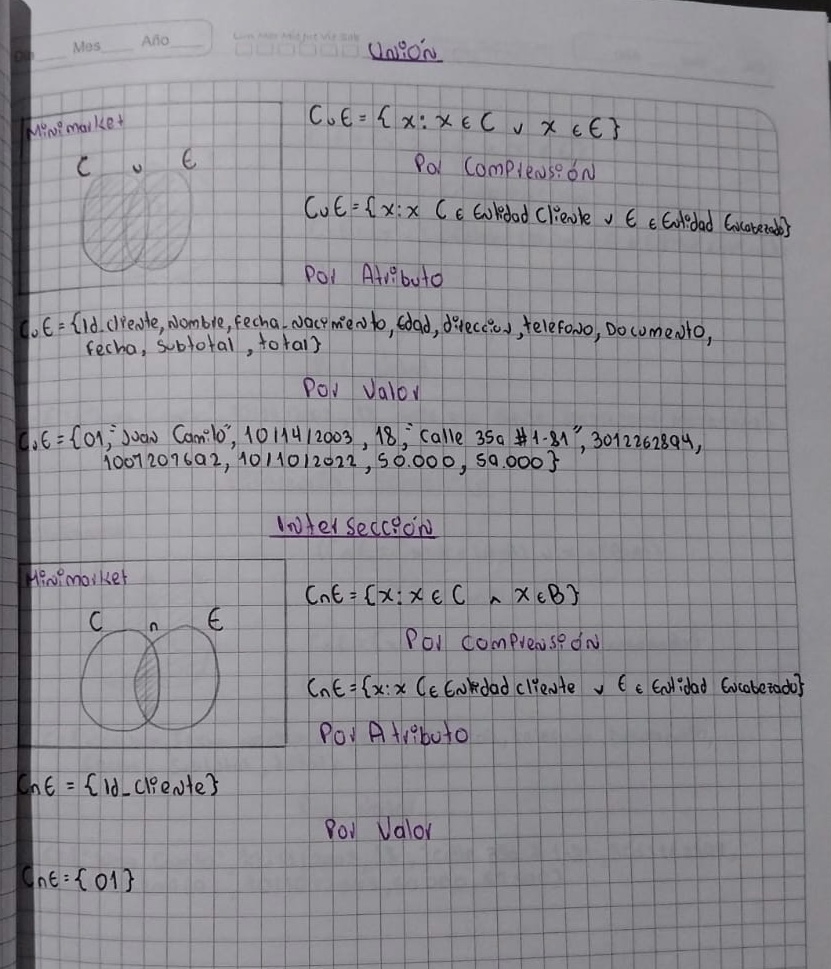 Mes Año
Unión
Minimarket
C ∪ E
C∪E = { x: x ∈ C ∨ x ∈ E}
Por Comprensión
C∪E = {x: x C ∈ Entidad Cliente ∨ E ∈ Entidad Encabezado}
Por Atributo
C∪E = {Id_cliente, Nombre, fecha_Nacimiento, Edad, direccion, telefono, Documento,
fecha, subtotal, total}
Por Valor
C∪E = {01, "Juan Camilo", 10/14/2003, 18, "Calle 35a #1-81", 3012262894,
1007207692, 10/10/2022, 50.000, 59.000}
Intersección
Minimarket
C ∩ E
C∩E = {x: x ∈ C ∧ x ∈ B}
Por comprensión
C∩E = {x: x C ∈ Entidad cliente ∨ E ∈ Entidad Encabezado}
Por Atributo
C∩E = {Id_cliente}
Por Valor
C∩E = { 01}